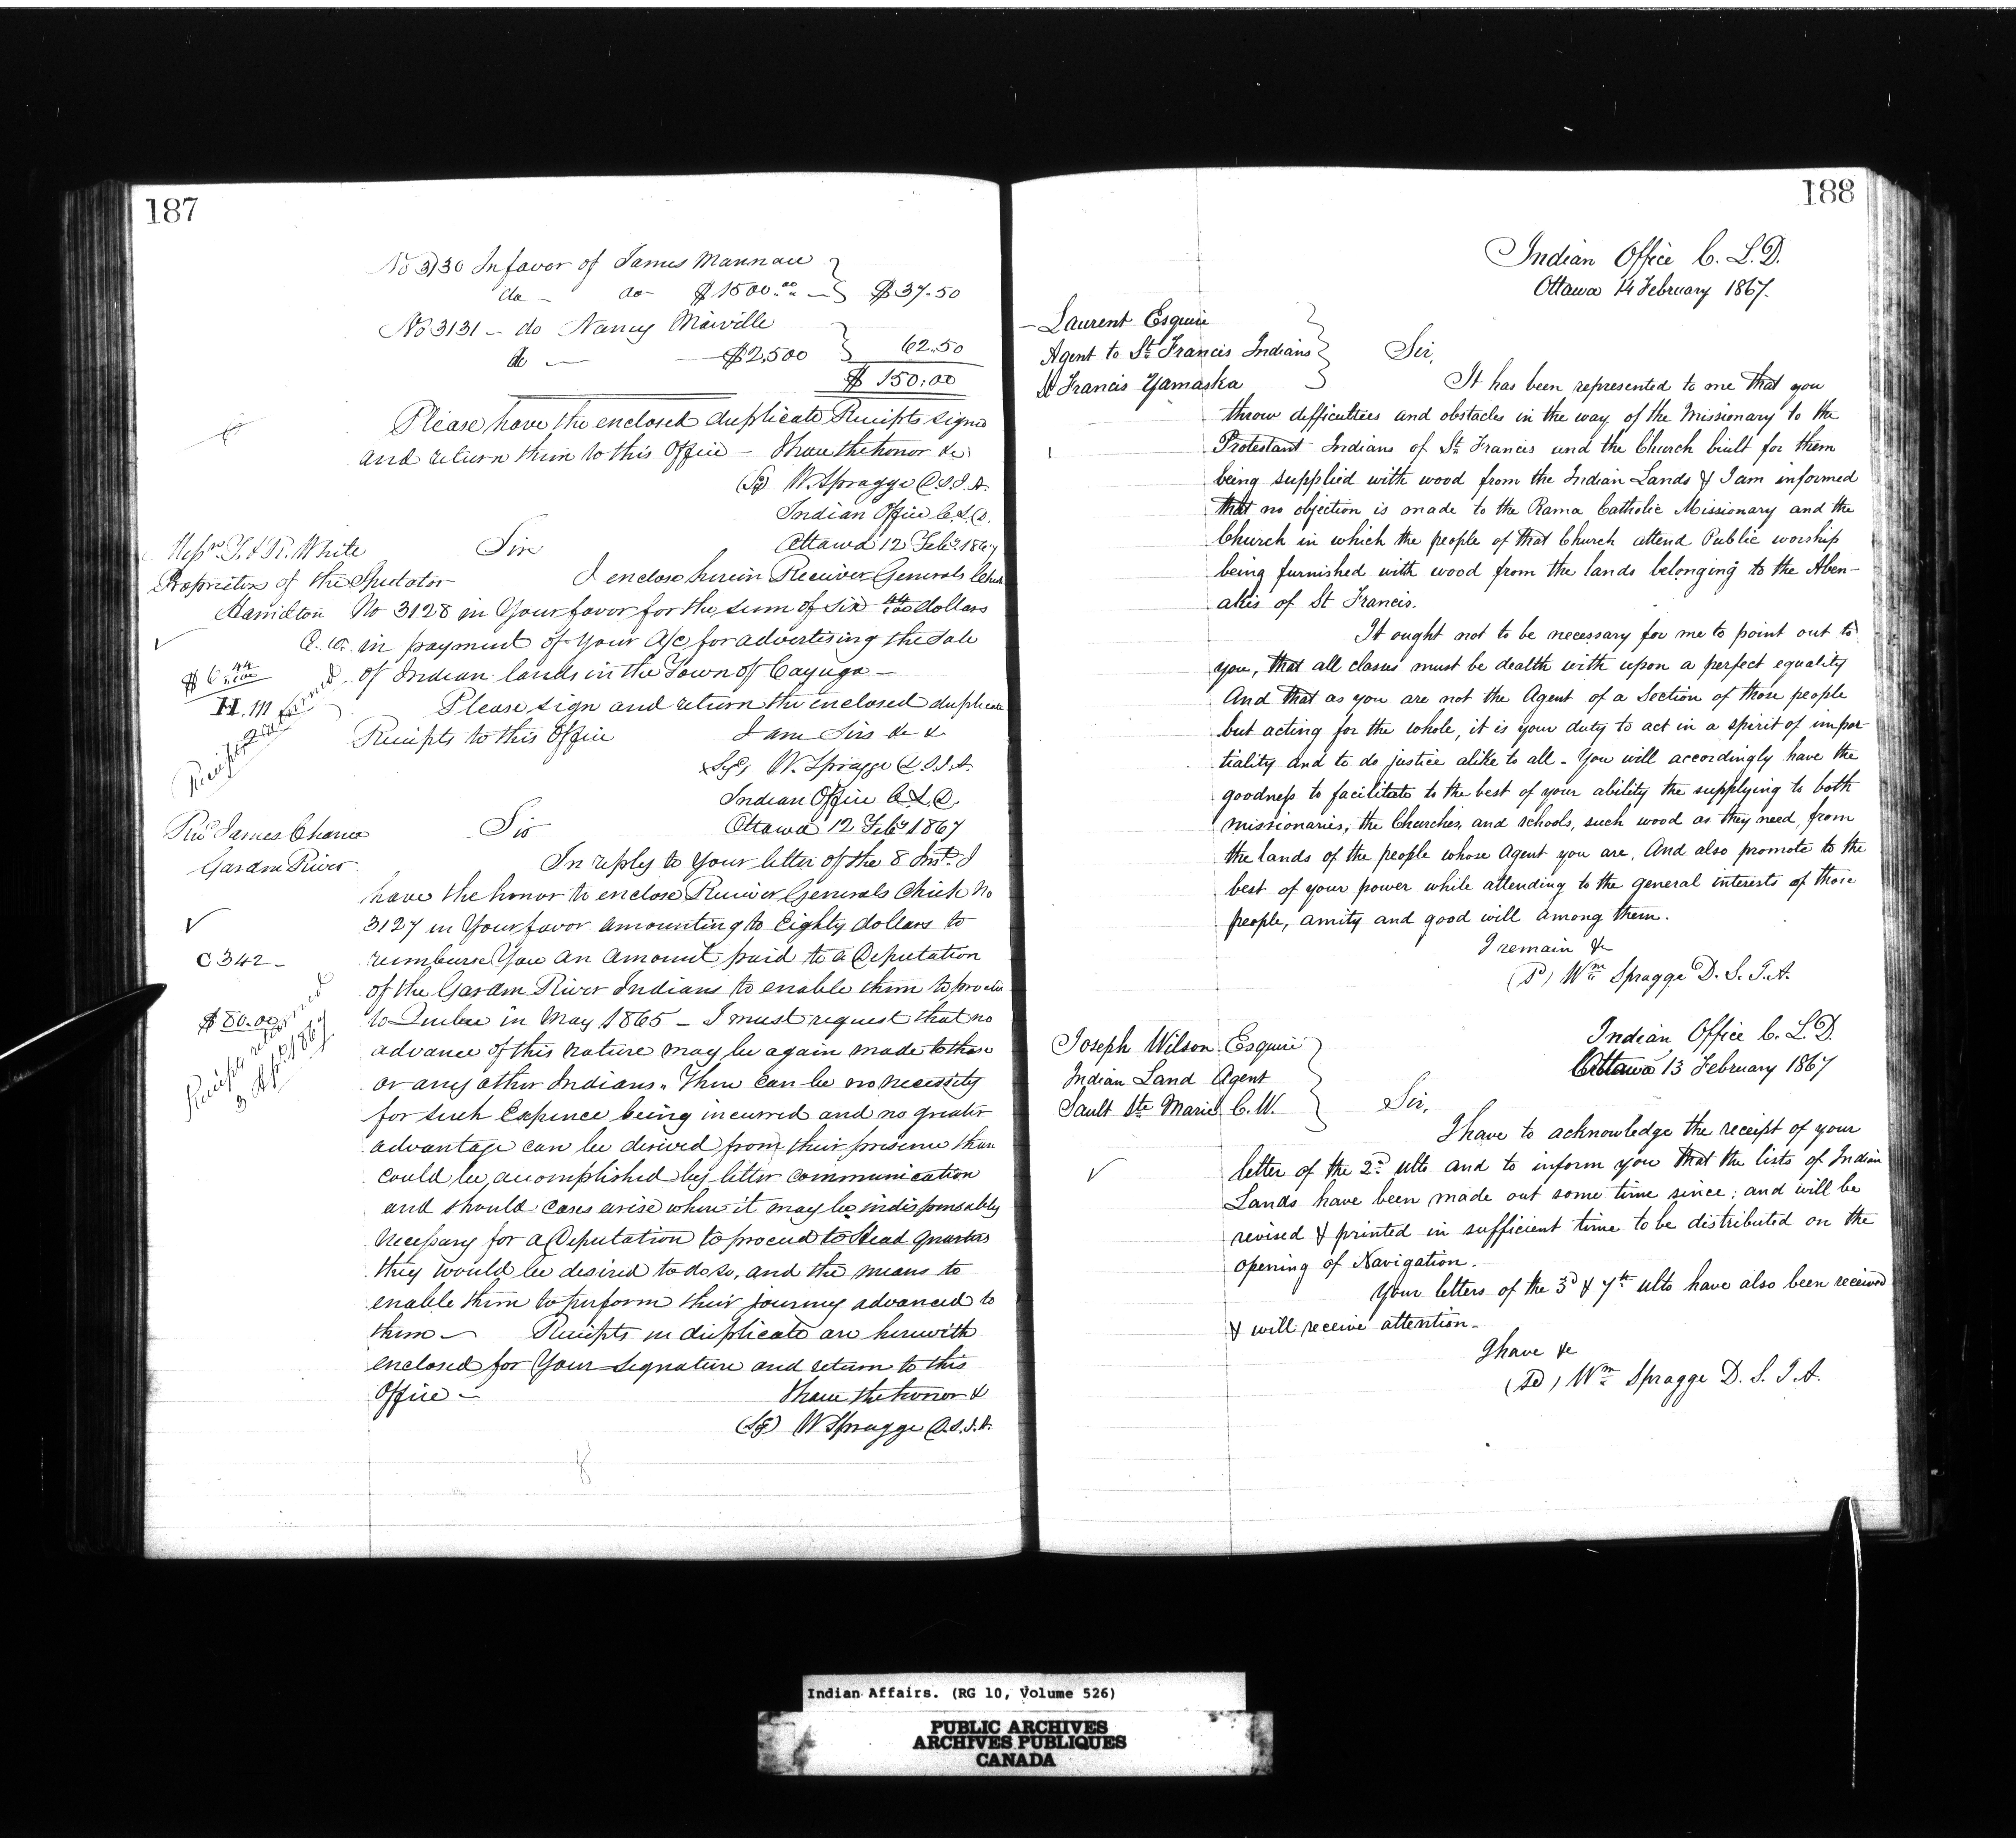 187
No 3130 In favor of James Mannau
do - do - $1500.00 - $37.50
No 3131 - do Nancy Maiville
do - - $2,500 62.50
$ 150.00
Please have the enclosed duplicate Receipts signed
and return them to this Office - I have the honor &c
(Sg) W. Spragge D.S.I.A.
Indian Office C.L.D.
Ottawa 12 Feby 1867
Messrs T. & R. White
Proprietors of the Spectator
Hamilton
C.W.
$6 44/100
H. 111
Receipt returned
Sir
I enclose herein Receiver Generals Check
No 3128 in Your favor for the sum of six 44/100 dollars
in payment of Your A/c for advertising the Sale
of Indian lands in the Town of Cayuga -
Please sign and return the enclosed duplicate
Receipts to this Office I am Sirs &c &
(Sgd) W. Spragge D.S.I.A.
Indian Office C.L.D.
Ottawa 12 Feby 1867
Revd James Chance
Garden River
C 342 -
$80.00
Receipts returned
3 April 1867
Sir
In reply to Your letter of the 8 Inst. I
have the honor to enclose Receiver Generals Check No
3127 in Your favor amounting to Eighty dollars to
reimburse You an amount paid to a Deputation
of the Garden River Indians to enable them to proceed
to Quebec in May 1865 - I must request that no
advance of this nature may be again made to those
or any other Indians. There can be no necessity
for such Expence being incurred and no greater
advantage can be derived from their presence than
could be accomplished by letter communication
and should cases arise where it may be indispensably
necessary for a Deputation to proceed to Head Quarters
they would be desired to do so, and the means to
enable them to perform their journey advanced to
them - Receipts in duplicate are herewith
enclosed for Your signature and return to this
Office - I have the honor &
(Sg) W Spragge D.S.I.A.
188
Indian Office C. L. D.
Ottawa 14 February 1867.
- Laurent Esquire
Agent to St. Francis Indians
St Francis Yamaska
Sir,
It has been represented to me that you
throw difficulties and obstacles in the way of the Missionary to the
Protestant Indians of St. Francis and the Church built for them
being supplied with wood from the Indian Lands & I am informed
that no objection is made to the Roma Catholic Missionary and the
Church in which the people of that Church attend Public worship
being furnished with wood from the lands belonging to the Aben-
akis of St Francis.
It ought not to be necessary for me to point out to
you, that all classes must be dealth with upon a perfect equality
And that as you are not the Agent of a Section of those people
but acting for the whole, it is your duty to act in a spirit of impar-
tiality and to do justice alike to all - You will accordingly have the
goodness to facilitate to the best of your ability the supplying to both
missionaries, the Churches, and schools, such wood as they need, from
the lands of the people whose Agent you are, And also promote to the
best of your power while attending to the general interests of those
people, amity and good will among them.
I remain &c
(Sd) Wm Spragge D. S. I. A.
Indian Office C. L. D.
Ottawa 13 February 1867
Joseph Wilson Esquire
Indian Land Agent
Sault Ste Marie C. W.
Sir,
I have to acknowledge the receipt of your
letter of the 2d ulto and to inform you that the lists of Indian
Lands have been made out some time since; and will be
revised & printed in sufficient time to be distributed on the
opening of Navigation.
Your letters of the 3d & 7th ulto have also been received
& will receive attention -
I have &c
(Sd) Wm Spragge D. S. I. A.
Indian Affairs. (RG 10, Volume 526)
PUBLIC ARCHIVES
ARCHIVES PUBLIQUES
CANADA